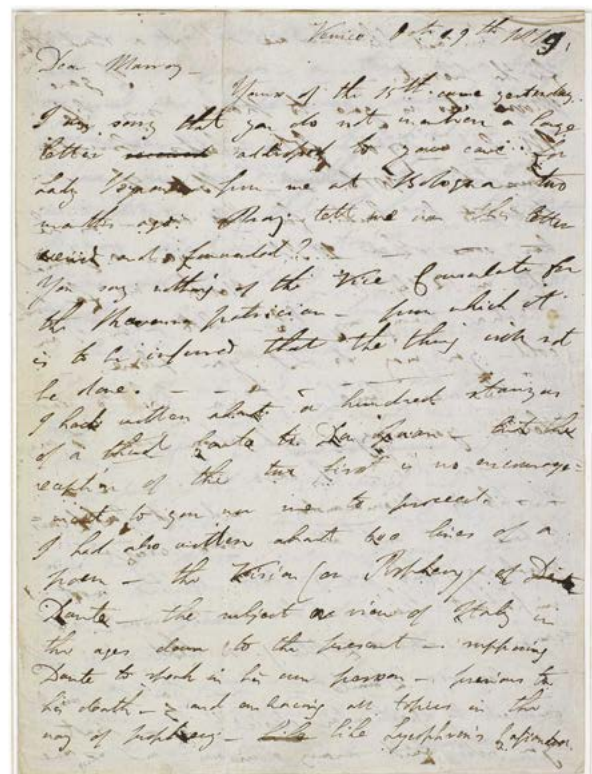 Venice Oct. 29th 1819.
Dear Murray —
Yours of the 15th came yesterday.
I am sorry that you do not mention a large
letter received addressed to your care for
Lady Byron — from me at Bologna — two
months ago. Pray tell me was this letter
received and forwarded? —
You say nothing of the Vice Consulate for
the Ravenna patrician — from which it
is to be inferred that the thing will not
be done. — — — —
I had written about a hundred stanzas
of a third Canto to Don Juan — but the
reception of the two first is no encourage=
=ment to you nor me to proceed. — —
I had also written about 600 lines of a
poem — the Vision (or Prophecy) of
Dante — the subject a view of Italy in
the ages down to the present — supposing
Dante to speak in his own person — previous to
his death — and embracing all topics in the
way of prophecy — like Lycophron's Cassandra.